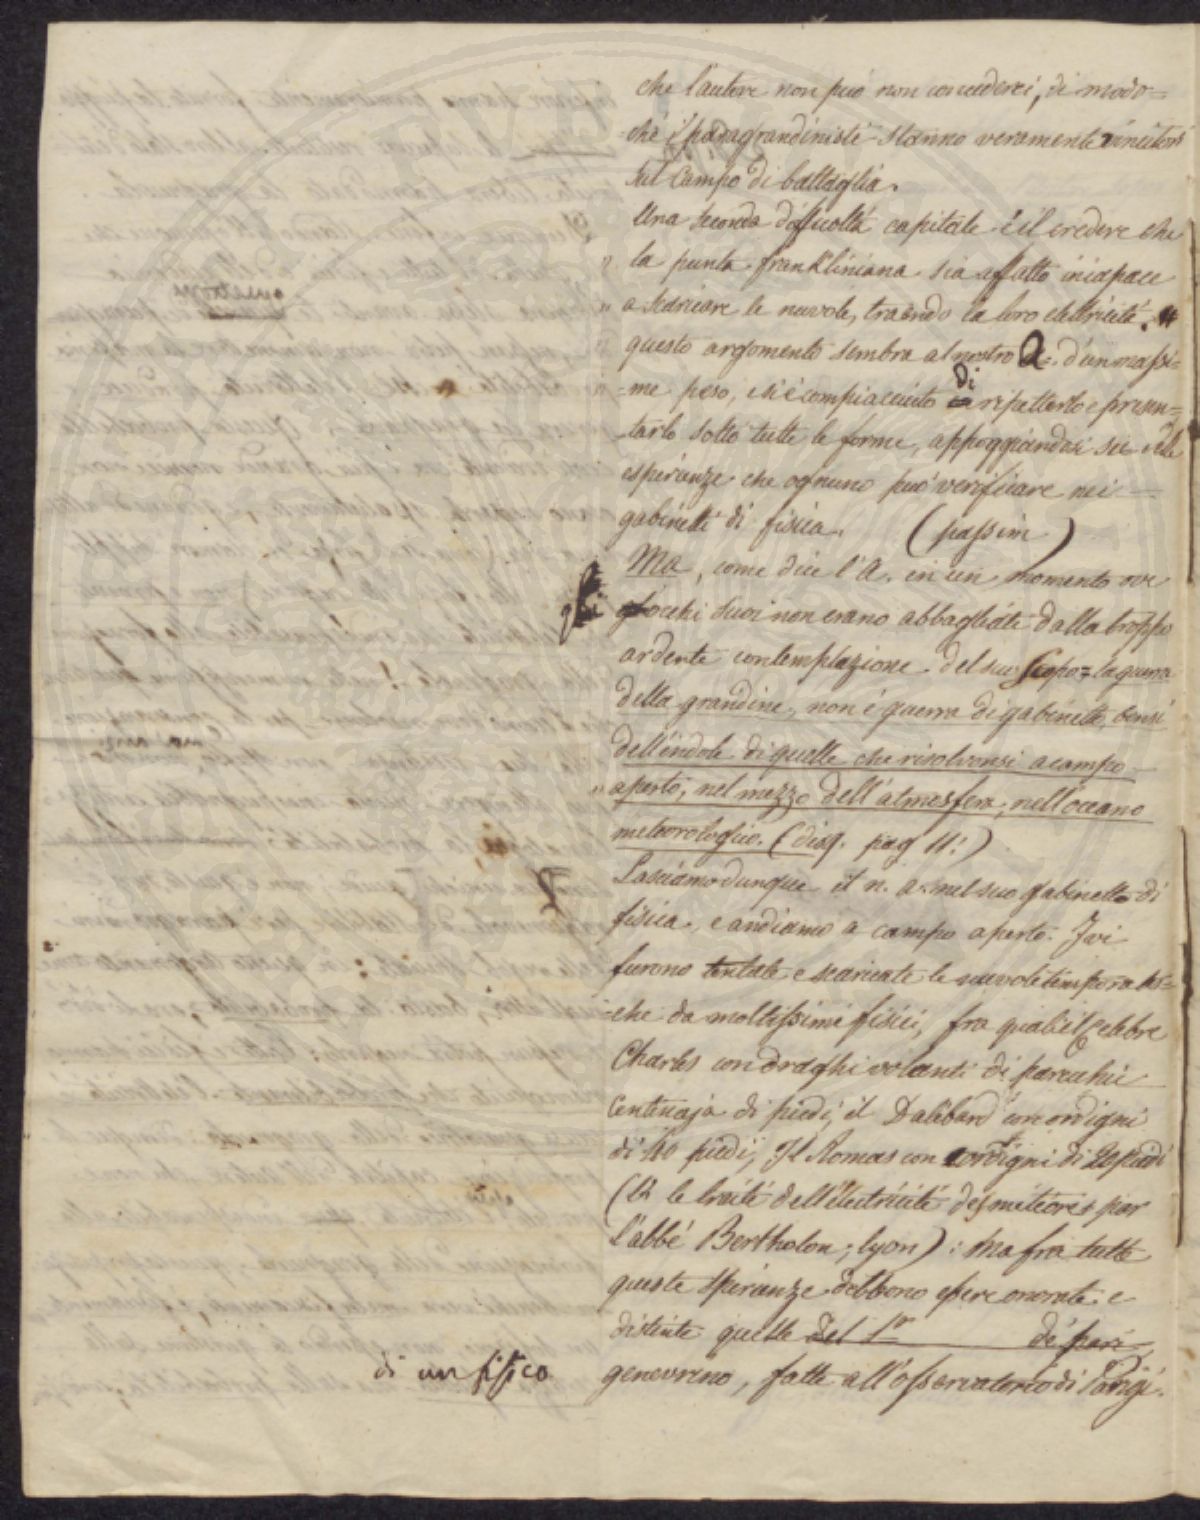 che l'autore non può non concederci, di modo=
chè i paragrandinisti stanno veramente vincitori
sul campo di battaglia.
Una seconda difficoltà capitale è il credere che
" la punta frankliniana sia affatto incapace
" a scaricare le nuvole, traendo la loro elettricità.
questo argomento sembra al nostro A. d'un massi=
=me peso, e si è compiacciuto di ripetterlo e presen=
tarlo sotto tutte le forme, appoggiandosi su delle
esperienze che ognuno può verificare nei
gabinetti di fisica. (passim)
Ma, come dice l'A. in un momento ove
gli occhi suoi non erano abbagliati dalla troppo
ardente contemplazione del suo scopo = la guerra
della grandine, non è guerra di gabinetto, bensì
dell'indole di quelle che risolvonsi a campo
" aperto, nel mezzo dell'atmosfera, nell'oceano
meteorologico. (disq. pag 11:)
Lasciamo dunque il n. a. nel suo gabinetto di
fisica, e andiamo a campo aperto. Ivi
furono tentate e scaricate le nuvole temporales=
=che da moltissimi fisici, fra quali il Celebre
Charles con draghi volanti di parecchie
Centinaja di piedi, il Dalibard con ordigni
di 40 piedi, Il Romas con ordigni di 20 piedi
(V. le traité dell'électricité des météores par
l'abbé Bertholon; lyon): Ma fra tutte
queste sperienze debbono essere onorate e
distinte quelle del 1.r de pari
di un fisico genevrino, fatte all'osservatorio di Parigi.